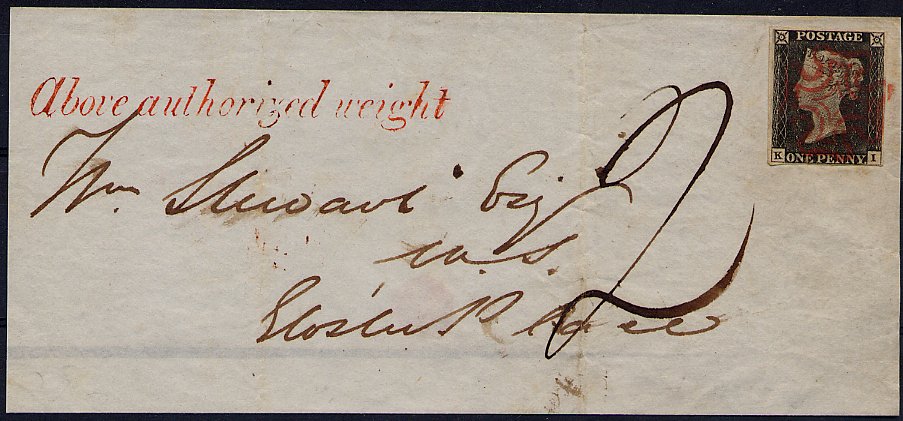 POSTAGE
K ONE PENNY I
Above authorized weight
Wm Stewart Esq
W.S.
Gloster Place
2